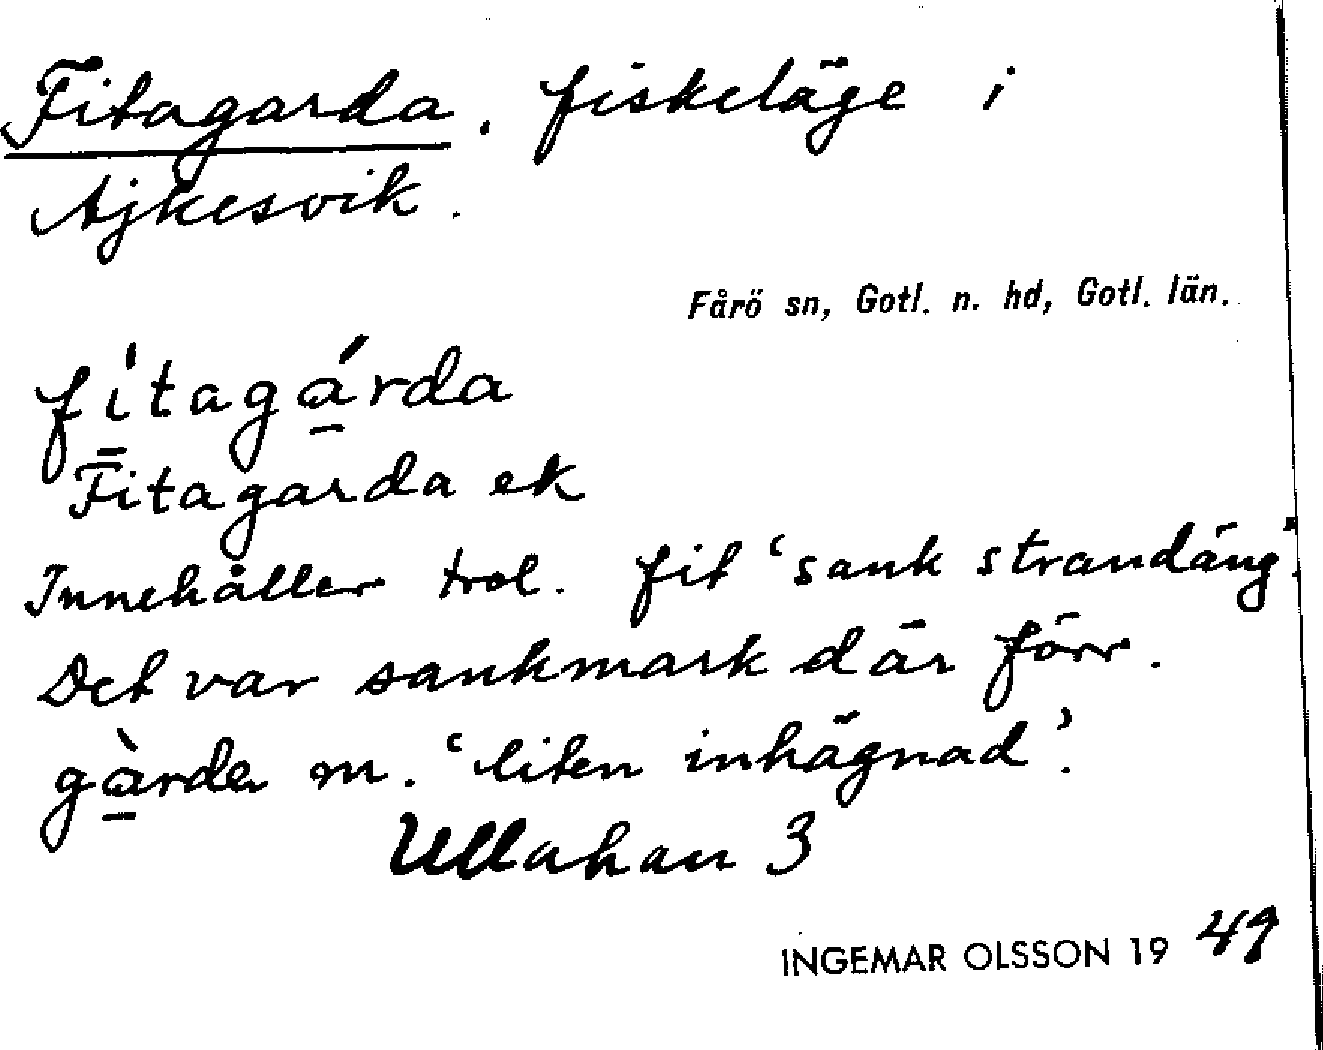 Fitagarda, fiskeläge i
Ajkesvik.
Fårö sn, Gotl. n. hd, Gotl. län.
fìtagá̲rda
Fitagarda ek
Innehåller trol. fit ‘sank strandäng’.
Det var sankmark där förr.
gà̲rda m. ‘liten inhägnad’.
Ullahau 3
INGEMAR OLSSON 19 49